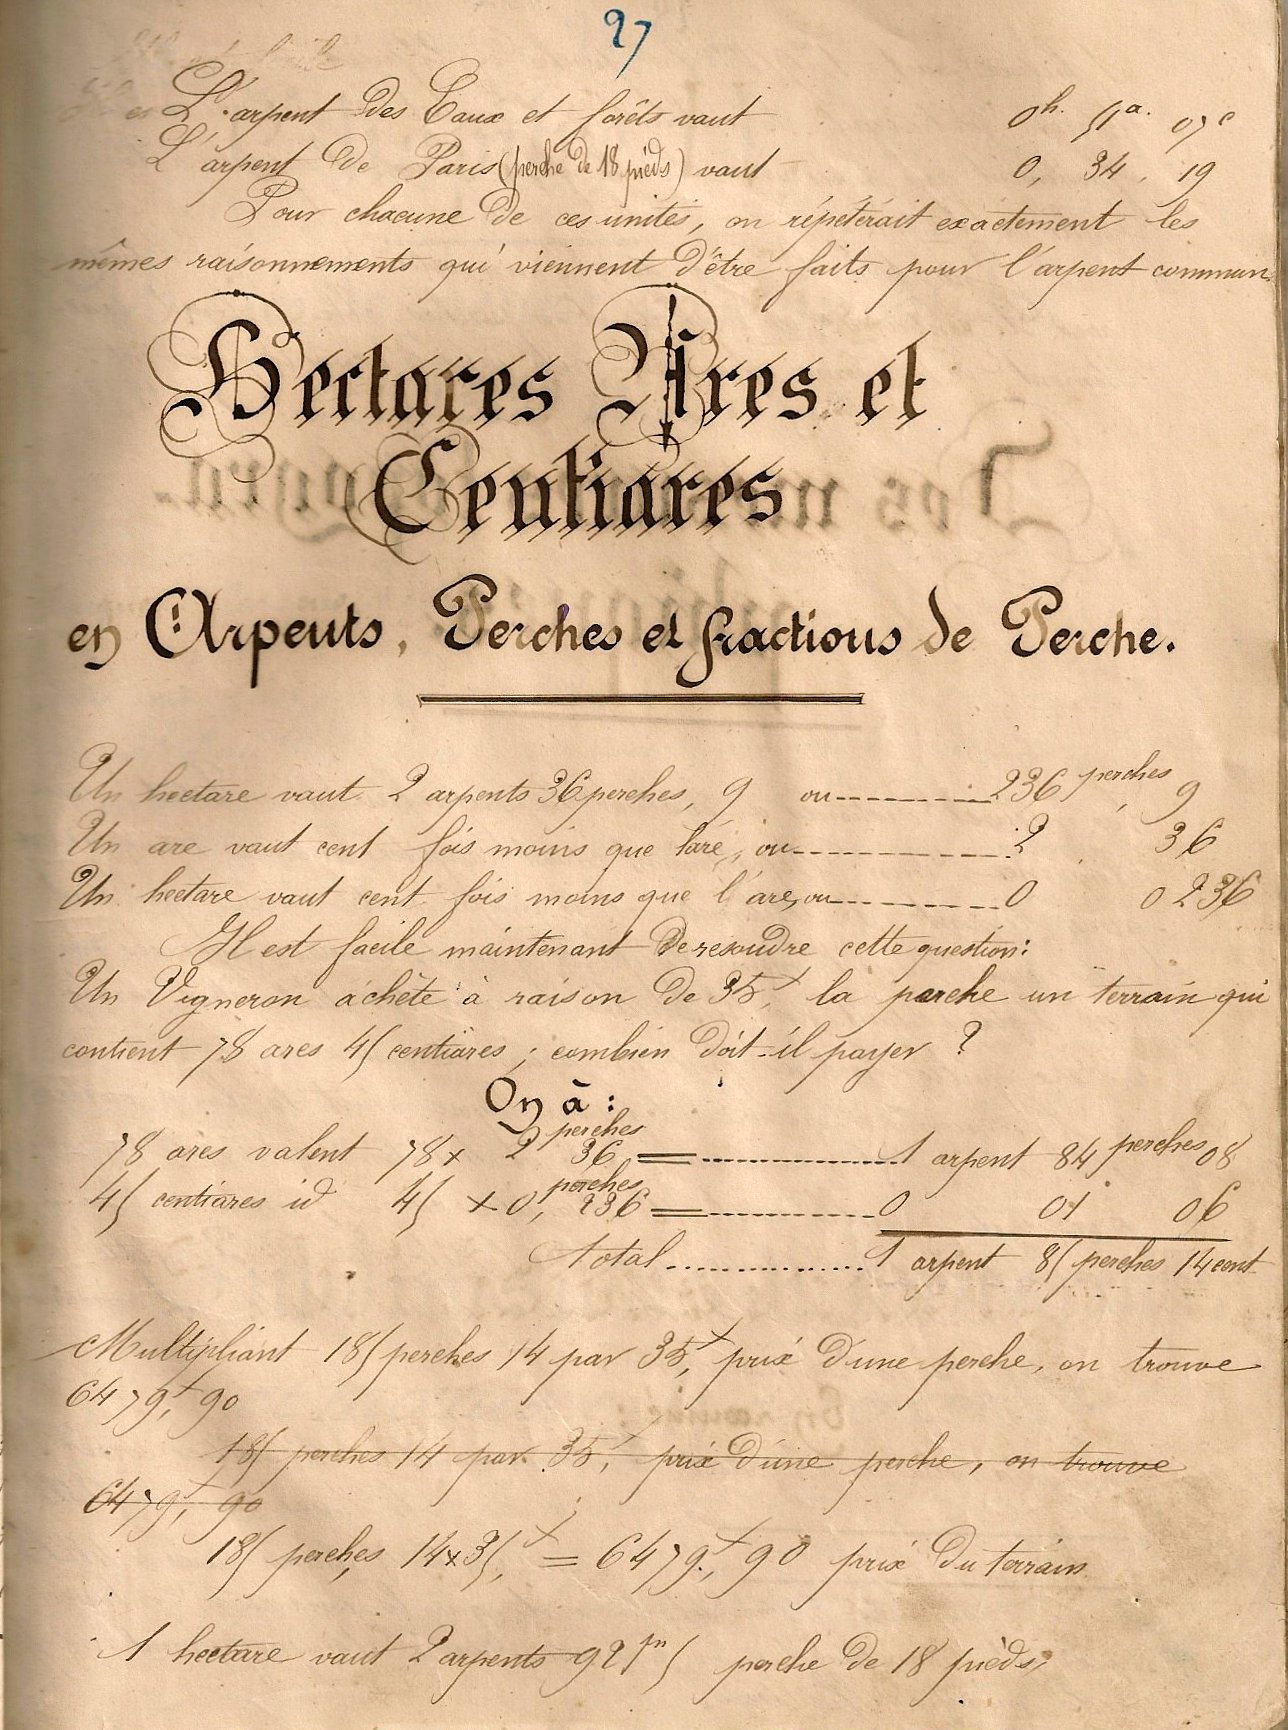 27
L'arpent des Eaux et forêts vaut 0h. 51a. 07c
L'arpent de Paris (perche de 18 pieds) vaut 0, 34, 19
Pour chacune de ces unités, on répéterait exactement les
mêmes raisonnements qui viennent d'être faits pour l'arpent commun.
Hectares Ares et
Centiares
en Arpents, Perches et fractions de Perche.
Un hectare vaut 2 arpents 36 perches, 9 ou 236 perches, 9
Un are vaut cent fois moins que l'are, ou 2 36
Un hectare vaut cent fois moins que l'are, ou 0 0236
Il est facile maintenant de resoudre cette question:
Un Vigneron achète à raison de 35f, la perche un terrain qui
contient 78 ares 45 centiares; combien doit-il payer ?
On à :
78 ares valent 78 x 2 perches 36 = 1 arpent 84 perches 08
45 centiares id 45 x 0, perches 236 = 0 01 06
Total 1 arpent 85 perches 14 cent
Multipliant 185 perches 14 par 35f, prix d'une perche, on trouve
6479f, 90
185 perches 14 par 35f, prix d'une perche, on trouve
6479f, 90
185 perches, 14 x 35,f = 6479f, 90 prix du terrain
1 hectare vaut 2 arpents 92 5 perche de 18 pieds,